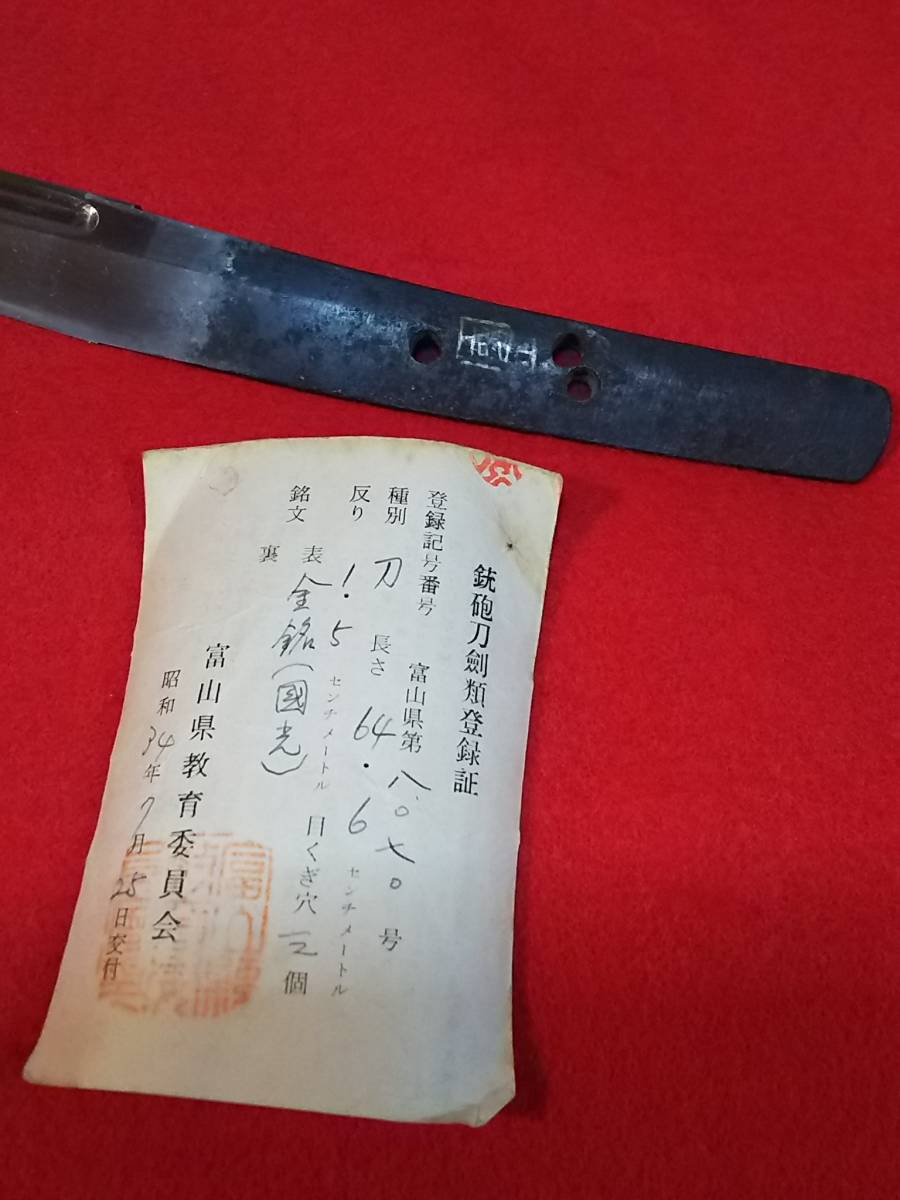 銃砲刀劍類登録証
登録記号番号 富山県第 八〇七〇 号
種別 刀 長さ 64.6 センチメートル
反り 1.5 センチメートル 目くぎ穴 三 個
銘文 表 金銘(國光)
裏
昭和34年7月25日交付
富山県教育委員会